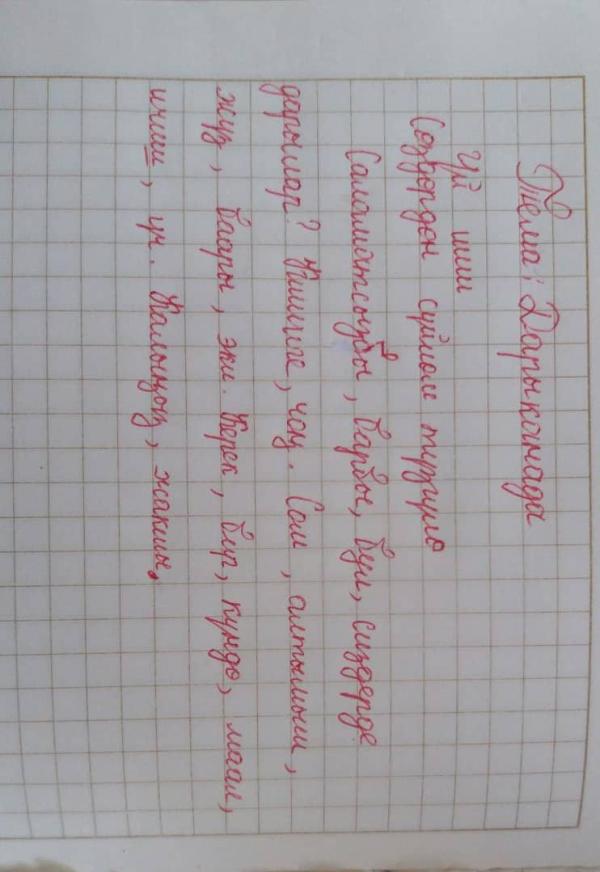 Тема: Дарыканада
Үй иши
Сөздөрдөн сүйлөм түзүңүз
Саламатсызбы, барбы, бул, сиздерде
дарылар? Кичине, чоң. Сом, алтымыш,
жүз, баары, эки. Керек, бир, күндө, маал,
ичиш, үч. Калыңыз, жакшы.